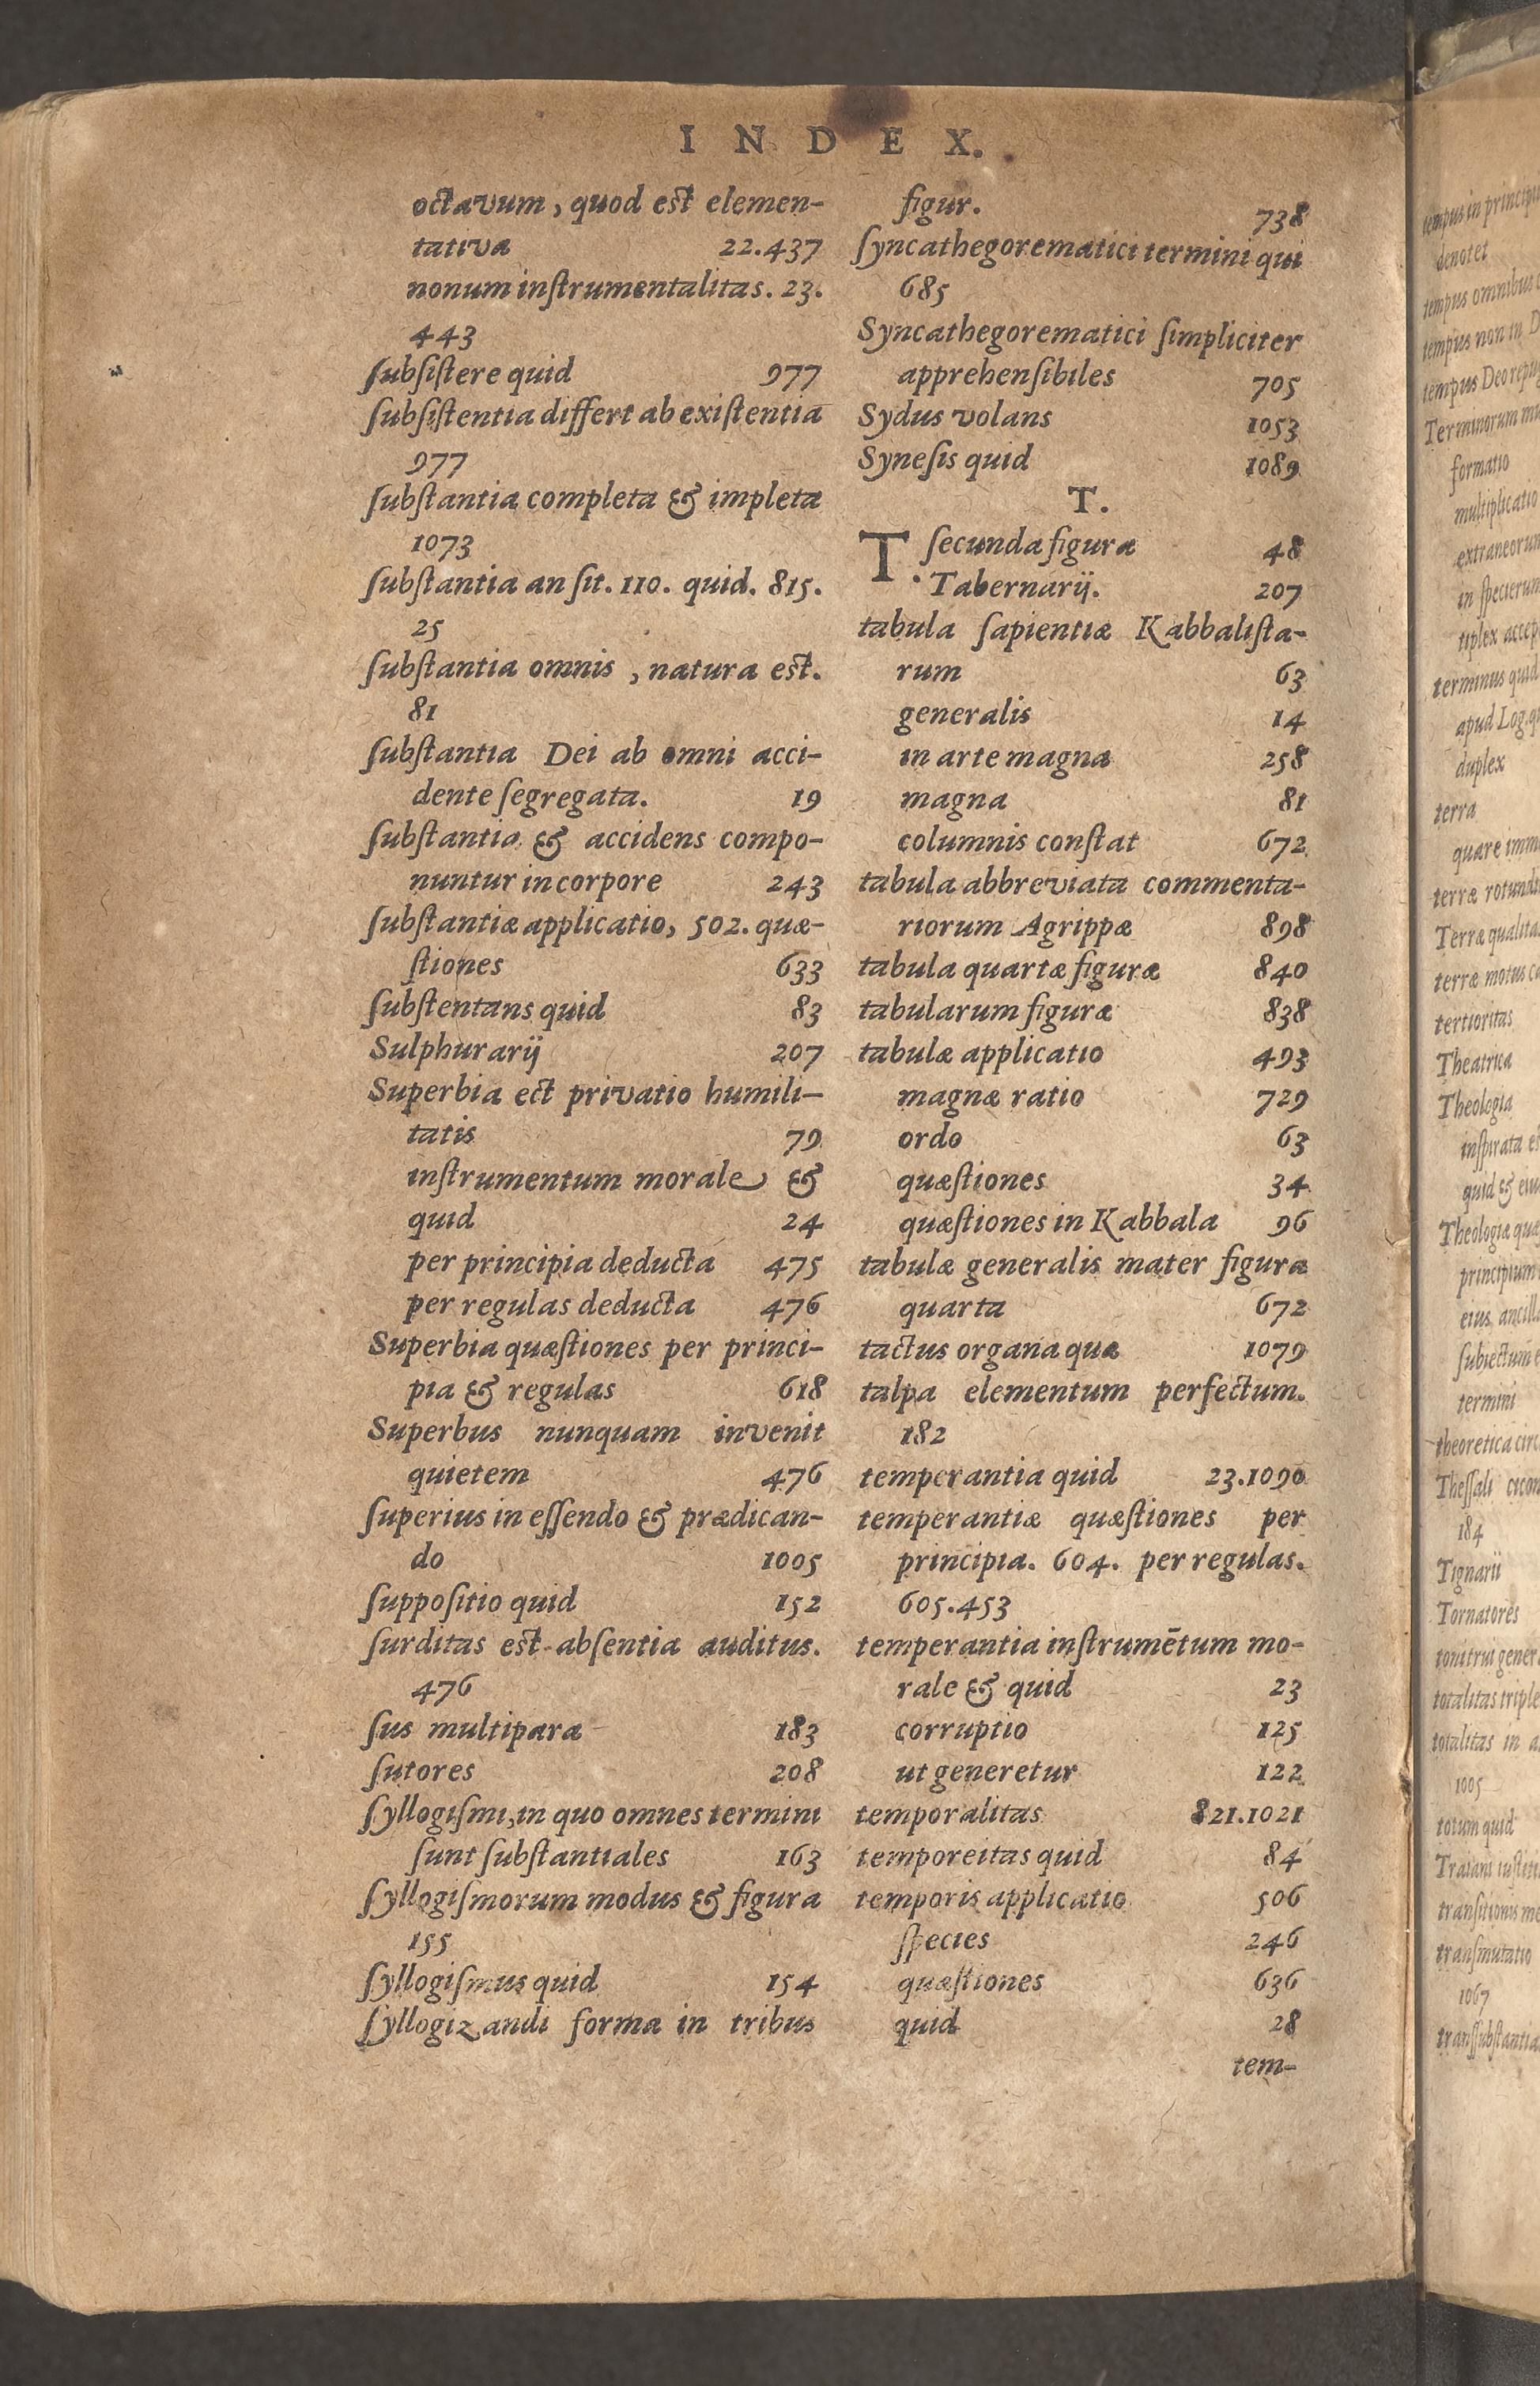 INDEX.
octavum, quod est elemen-
tativa 22.437
nonum inſtrumentalitas. 23.
443
ſubſiſtere quid 977
ſubſiſtentia differt ab exiſtentia
977
ſubſtantia completa & impleta
1073
ſubſtantia an ſit. 110. quid. 815.
25
ſubſtantia omnis, natura est.
81
ſubſtantia Dei ab omni acci-
dente ſegregata. 19
ſubſtantia & accidens compo-
nuntur in corpore 243
ſubſtantiæ applicatio, 502. quæ-
ſtiones 633
ſubſtentans quid 83
Sulphurarij 207
Superbia ect privatio humili-
tatis 79
inſtrumentum morale &
quid 24
per principia deducta 475
per regulas deducta 476
Superbia quæſtiones per princi-
pia & regulas 618
Superbus nunquam invenit
quietem 476
ſuperius in eſſendo & prædican-
do 1005
ſuppoſitio quid 152
ſurditas est abſentia auditus.
476
ſus multipara 183
ſutores 208
ſyllogiſmi, in quo omnes termini
ſunt ſubſtantiales 163
ſyllogiſmorum modus & figura
155
ſyllogiſmus quid 154
ſyllogizandi forma in tribus
figur. 738
ſyncathegorematici termini qui
685
Syncathegorematici ſimpliciter
apprehenſibiles 705
Sydus volans 1053
Syneſis quid 1089
T.
T. ſecunda figura 48
Tabernarij. 207
tabula ſapientiæ Kabbaliſta-
rum 63
generalis 14
in arte magna 258
magna 81
columnis conſtat 672
tabula abbreviata commenta-
riorum Agrippæ 898
tabula quartæ figuræ 840
tabularum figura 838
tabulæ applicatio 493
magnæ ratio 729
ordo 63
quæſtiones 34
quæſtiones in Kabbala 96
tabulæ generalis mater figura
quarta 672
tactus organa quæ 1079
talpa elementum perfectum.
182
temperantia quid 23.1090
temperantiæ quæſtiones per
principia. 604. per regulas.
605.453
temperantia inſtrumētum mo-
rale & quid 23
corruptio 125
ut generetur 122
temporalitas 821.1021
temporeitas quid 84
temporis applicatio 506
ſpecies 246
quæſtiones 636
quid 28
tem-
tempus in
denotet
tempus omnibus
tempus non in
tempus Deo
Terminorum
formatio
multiplicatio
in ſpecierum
terminus quid
apud Log.
duplex
terra
quare
terræ
Terræ
terræ motus
tertioritas
Theatrica
Theologia
inſpirata
quid &
Theologiæ
principium
eius
ſubiectum
termini
theoretica
Theſſali
184
Tignarii
Tornatores
tonitrui
totalitas
totalitas in
1005
totum quid
Traiani
tranſitionis
tranſmutatio
1067